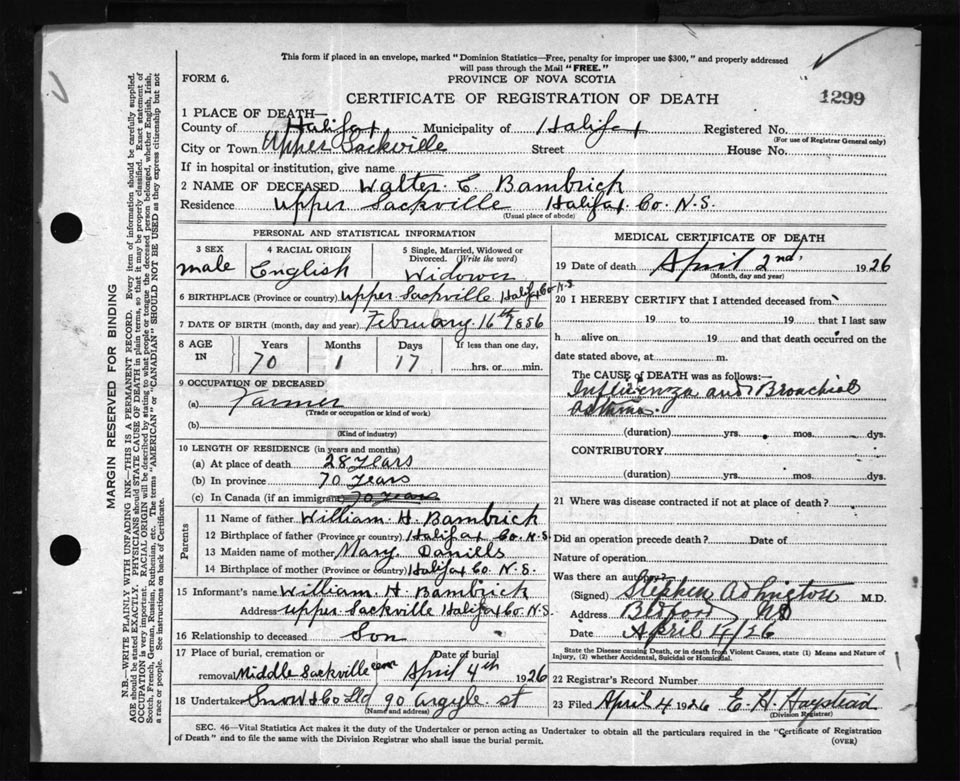 This form if placed in an envelope, marked "Dominion Statistics—Free, penalty for improper use $300," and properly addressed
will pass through the Mail "FREE."
FORM 6.
PROVINCE OF NOVA SCOTIA
CERTIFICATE OF REGISTRATION OF DEATH
1299
1 PLACE OF DEATH—
County of Halifax Municipality of Halifax Registered No.
(For use of Registrar General only)
City or Town Upper Sackville Street House No.
If in hospital or institution, give name
2 NAME OF DECEASED Walter. C. Bambrick
Residence Upper Sackville Halifax Co. N.S.
(Usual place of abode)
PERSONAL AND STATISTICAL INFORMATION
3 SEX 4 RACIAL ORIGIN 5 Single, Married, Widowed or
Divorced. (Write the word)
male English Widower
6 BIRTHPLACE (Province or country) Upper Sackville Halifax Co. N.S
7 DATE OF BIRTH (month, day and year) February. 16th 1856
8 AGE IN Years Months Days If less than one day,
70 1 17 hrs. or min.
9 OCCUPATION OF DECEASED
(a) Farmer
(Trade or occupation or kind of work)
(b)
(Kind of industry)
10 LENGTH OF RESIDENCE (in years and months)
(a) At place of death 28 years
(b) In province 70 years
(c) In Canada (if an immigrant) 70 years
Parents
11 Name of father William. H. Bambrick
12 Birthplace of father (Province or country) Halifax Co. N.S.
13 Maiden name of mother Mary. Daniells
14 Birthplace of mother (Province or country) Halifax Co. N.S.
15 Informant's name William. H. Bambrick
Address Upper Sackville Halifax Co. N.S.
16 Relationship to deceased Son
17 Place of burial, cremation or Date of burial
removal Middle Sackville cem April 4th 1926
18 Undertaker Snow & Co Ltd 90 Argyle st
(Name and address)
MEDICAL CERTIFICATE OF DEATH
19 Date of death April 2nd, 1926
(Month, day and year)
20 I HEREBY CERTIFY that I attended deceased from
19 to 19 that I last saw
h alive on 19 and that death occurred on the
date stated above, at m.
The CAUSE of DEATH was as follows:—
Influenza and Bronchial
asthma.
(duration) yrs. mos. dys.
CONTRIBUTORY
(duration) yrs. mos. dys.
21 Where was disease contracted if not at place of death?
Did an operation precede death? Date of
Nature of operation
Was there an autopsy?
(Signed) Stephen M.D.
Address Bedford NS
Date April 4/26
State the Disease causing Death, or in death from Violent Causes, state (1) Means and Nature of
Injury, (2) whether Accidental, Suicidal or Homicidal.
22 Registrar's Record Number
23 Filed April 4 1926 E. H. Haystead
(Division Registrar)
SEC. 46—Vital Statistics Act makes it the duty of the Undertaker or person acting as Undertaker to obtain all the particulars required in the "Certificate of Registration
of Death" and to file the same with the Division Registrar who shall issue the burial permit.
(OVER)
MARGIN RESERVED FOR BINDING
N.B.—WRITE PLAINLY WITH UNFADING INK—THIS IS A PERMANENT RECORD. Every item of information should be carefully supplied.
AGE should be stated EXACTLY. PHYSICIANS should STATE CAUSE OF DEATH in plain terms, so that it may be properly classified. Exact statement of
OCCUPATION is very important. RACIAL ORIGIN will be described by stating to what people or tongue the deceased person belonged, whether English, Irish,
Scotch, French, German, Russian, Ruthenian, etc. The terms "AMERICAN" or "CANADIAN" SHOULD NOT BE USED as they express citizenship but not
a race or people. See instructions on back of Certificate.